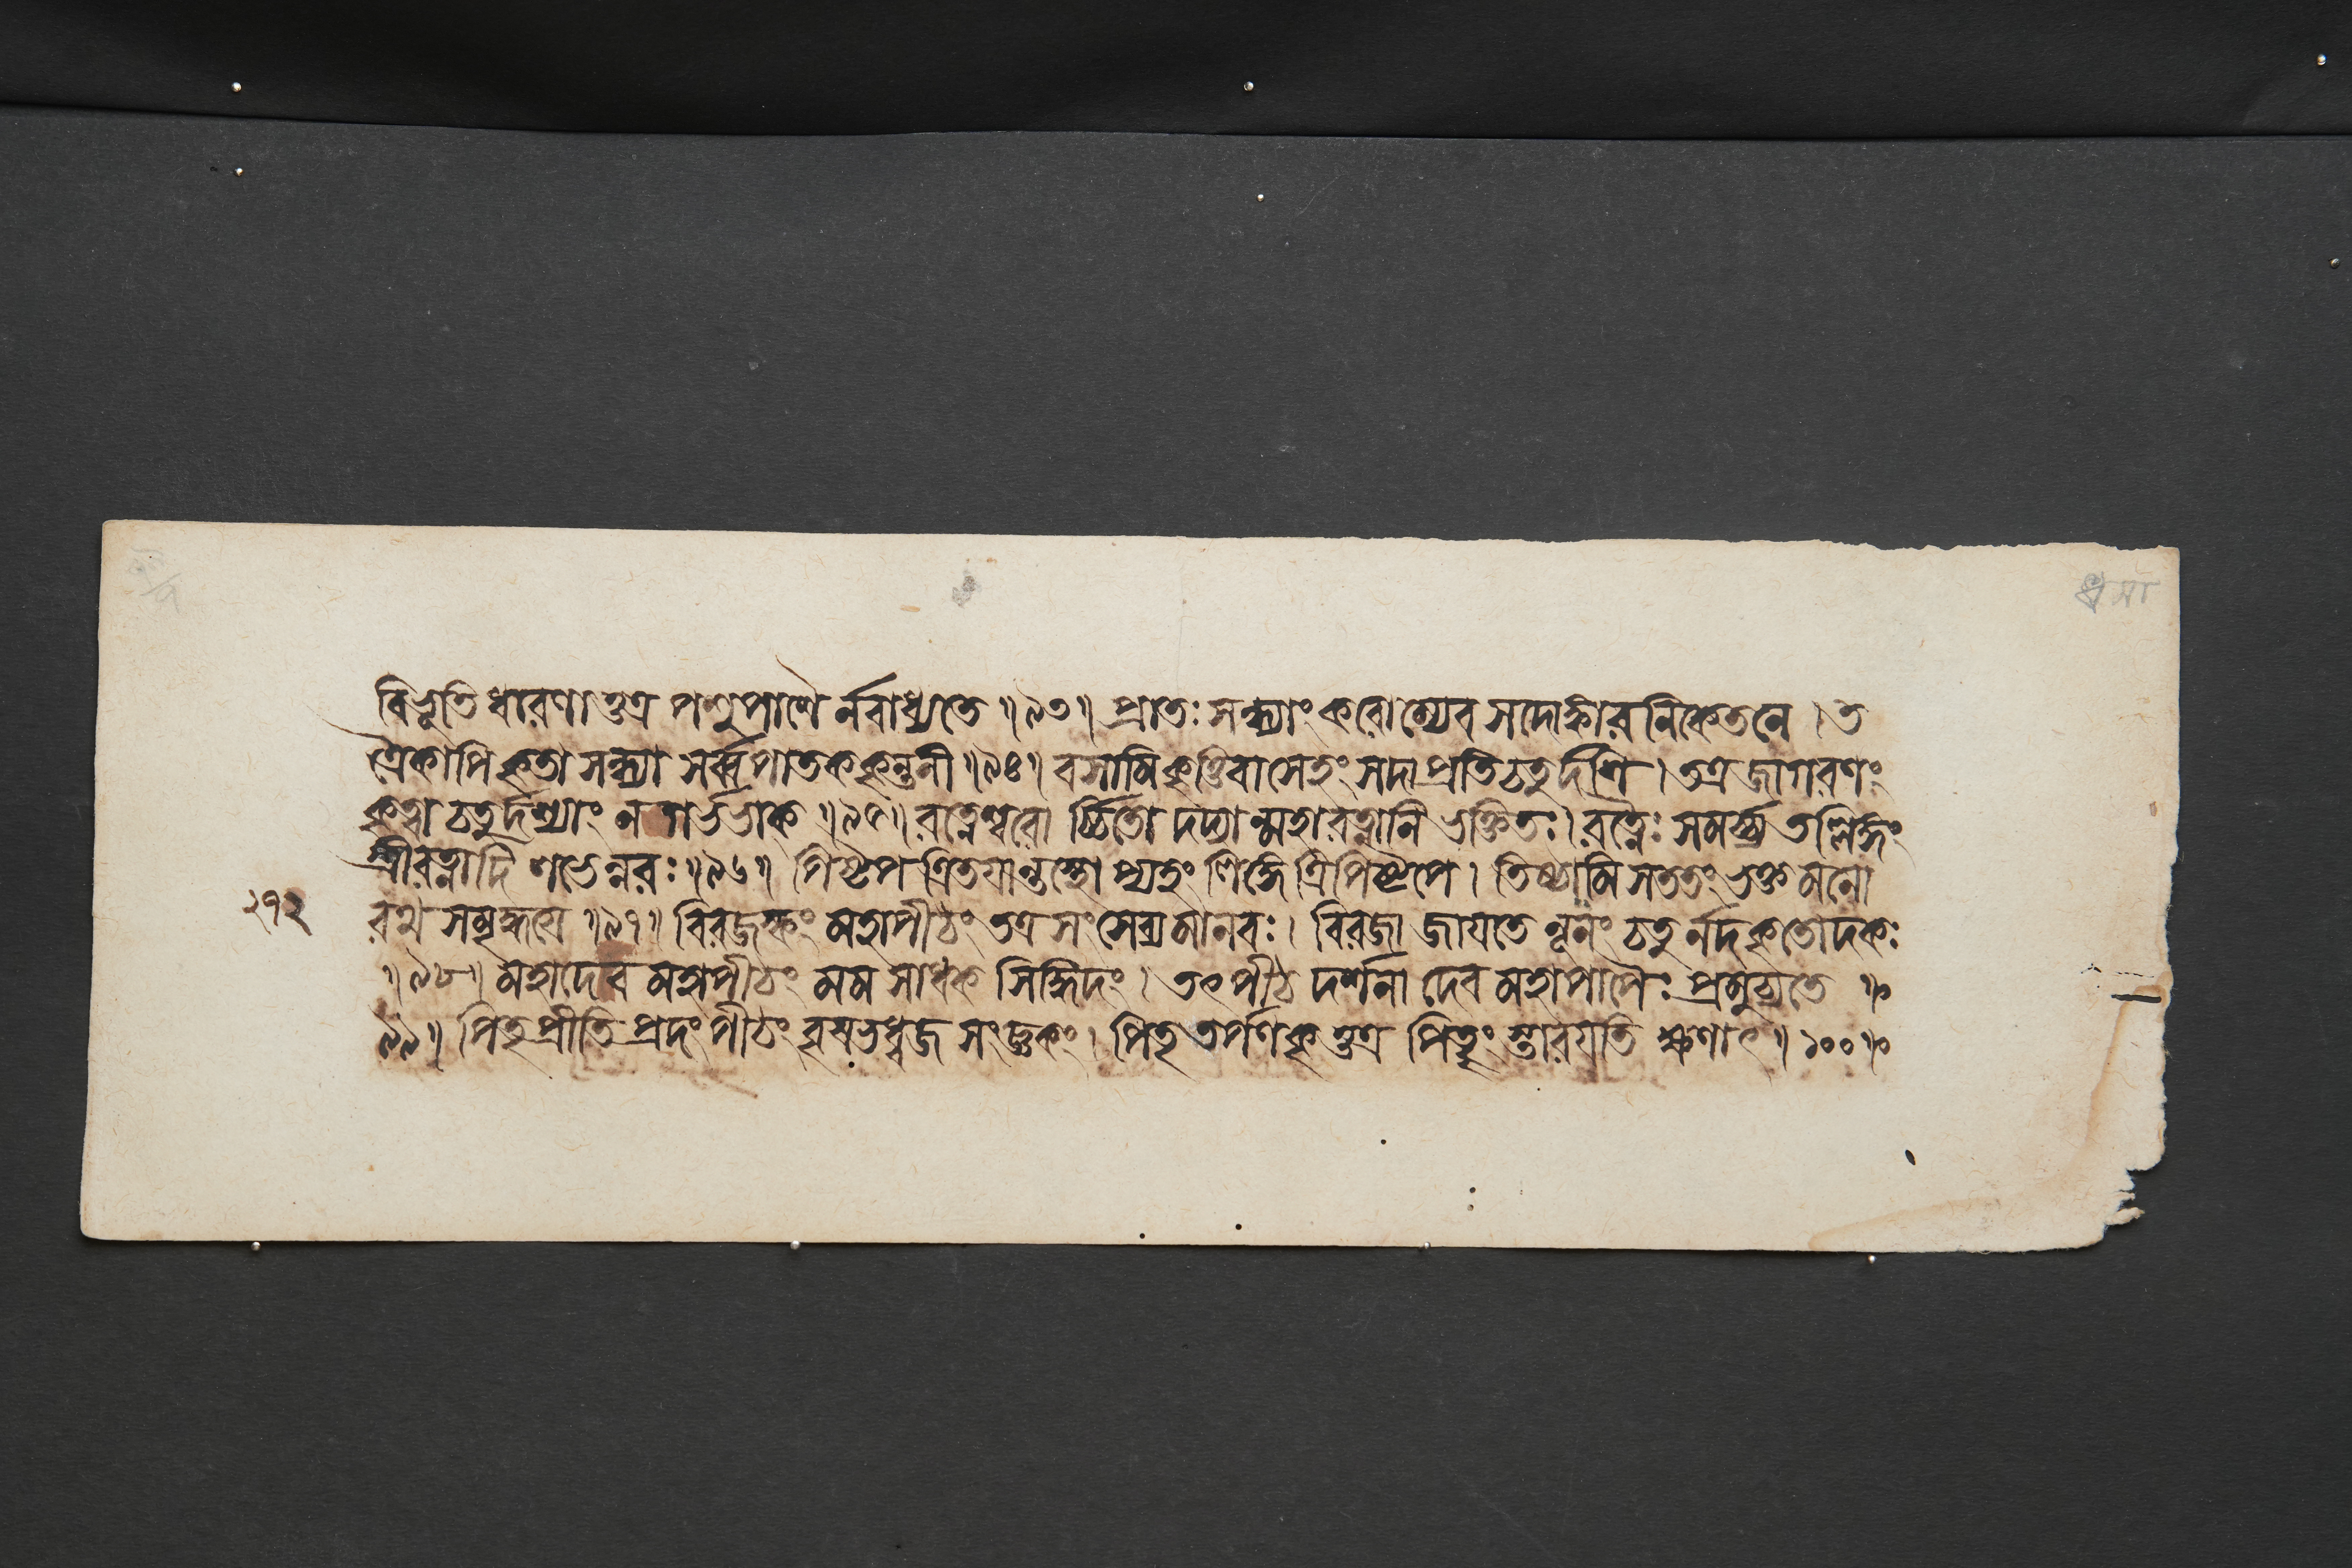 বিভূতি ধারণাত্তত্র পশুপাশৈ র্নবাধ্যতে ॥৯৩॥ প্রাতঃ সন্ধ্যাং করোম্যেব সদোঙ্কার নিকেতনে । ত
ত্রৈকাপি কৃতা সন্ধ্যা সর্ব্বপাতককৃন্তনী ॥৯৪॥ বসামি কৃত্তিবাসেহং সদা প্রতিচতুর্দশি । তত্র জাগরণং
কৃত্বা চতুর্দশ্যাং ন গর্ভভাক্ ॥৯৫॥ রত্নেশ্বরো র্চ্চিতো দদ্যান্মহারত্নানি ভক্তিতঃ। রত্নৈঃ সমর্চ্য তল্লিঙ্গং
স্ত্রীরত্নাদি লভেন্নরঃ ॥৯৬॥ পিষ্টপ ত্রিতয়ান্তস্থো প্যহং লিঙ্গে ত্রিপিষ্টপে । তিষ্ঠামি সততং ভক্ত মনো
২৭২ রথ সমৃদ্ধয়ে ॥৯৭॥ বিরজস্কং মহাপীঠং তত্র সংসেব্য মানবঃ । বিরজা জায়তে নূনং চতুর্নদ কৃতোদকঃ
॥৯৮॥ মহাদেব মহাপীঠং মম সাধক সিদ্ধিদং । তৎপীঠ দর্শনা দেব মহাপাপৈঃ প্রমুচ্যতে ॥
৯৯॥ পিতৃ প্রীতি প্রদং পীঠং বৃষভধ্বজ সংজ্ঞকং । পিতৃ তর্পণকৃত্তত্র পিতৄং স্তারয়তি ক্ষণাৎ ॥ ১০০॥